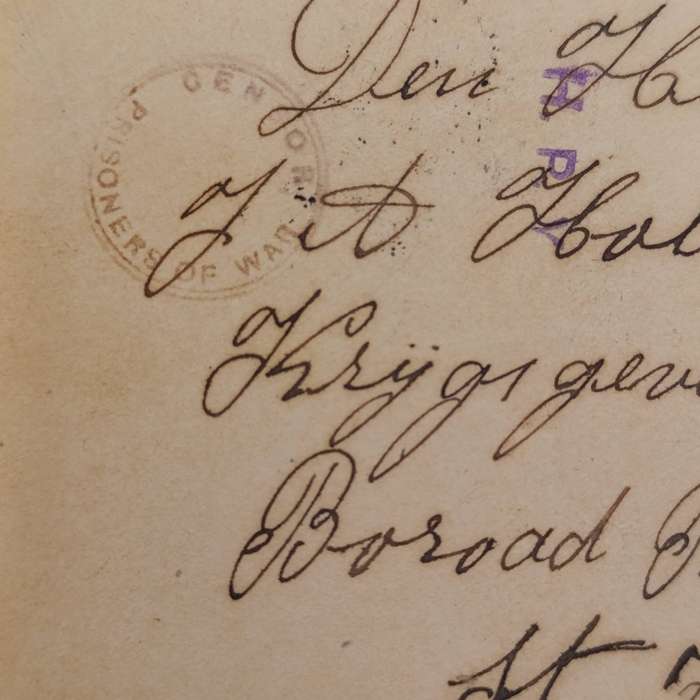 CENSOR
PRISONERS OF WAR
H P
Den H
J. A. Hol
Krijgsgev
Boroad
St